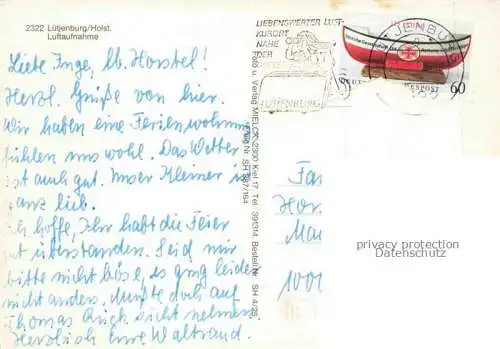 2322 Lütjenburg/Holst.
Luftaufnahme
Liebe Inge, lb. Horstel!
Herzl. Grüße von hier.
Wir haben eine Ferienwohnung
fühlen uns wohl. Das Wetter
ist auch gut. Unser Kleiner is
ganz lieb.
ich hoffe, Ihr habt die Feier
gut überstanden. Seid mir
bitte nicht böse, es ging leider
nicht anders. Mußte doch auf
Thomas Rück sicht nehmen.
Herzlich Eure Waltraud.
Foto u. Verlag MIELCK, 2300 Kiel 17, Tel. 391314, Bestellnr. SH 4/25
SH 387/184
LIEBENSWERTER LUFT-
KURORT
NÄHE
DER
LÜTJENBURG
TJENBURG
POST
60
Fa
Hor
Ma
1000
privacy protection
Datenschutz